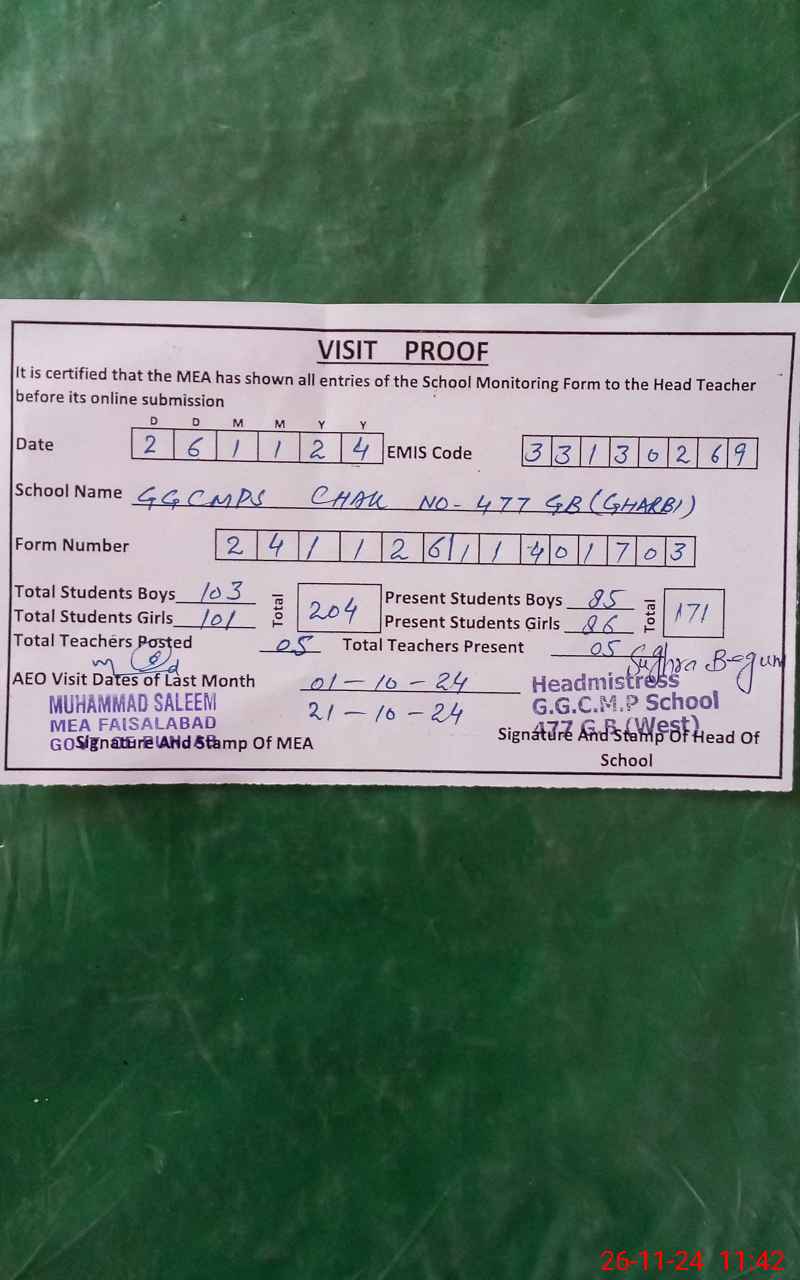 VISIT PROOF
It is certified that the MEA has shown all entries of the School Monitoring Form to the Head Teacher
before its online submission
D D M M Y Y
Date 2 6 1 1 2 4 EMIS Code 3 3 1 3 0 2 6 9
School Name GGCMPS CHAK NO-477 GB (GHARBI)
Form Number 2 4 1 1 2 6 1 1 4 0 1 7 0 3
Total Students Boys 103 Total 204 Present Students Boys 85 Total 171
Total Students Girls 101 Present Students Girls 86
Total Teachers Posted 05 Total Teachers Present 05
Sughra Begum
AEO Visit Dates of Last Month 01-10-24
21-10-24
MUHAMMAD SALEEM
MEA FAISALABAD
GOVT. OF PUNJAB
Signature And Stamp Of MEA
Headmistress
G.G.C.M.P School
477 G.B (West)
Signature And Stamp Of Head Of
School
26-11-24 11:42